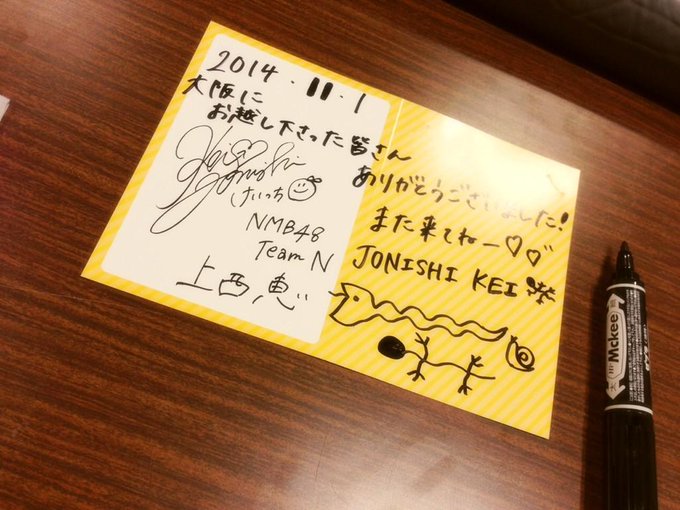 2014.11.1
大阪に
お越し下さった皆さん
ありがとうございました!
また来てねー♡♡
JONISHI KEI
けいっち
NMB48
Team N
上西恵
Mckee